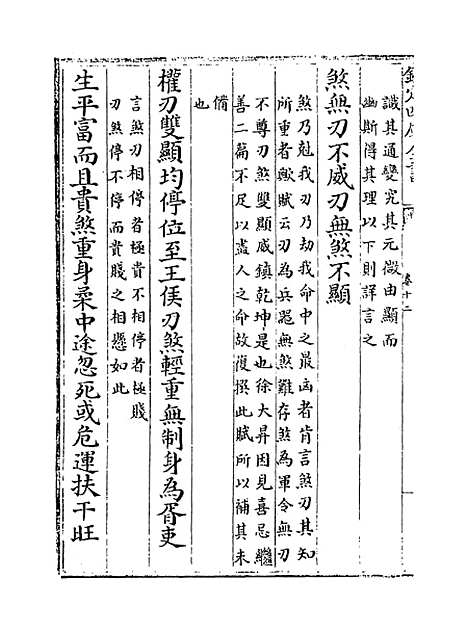 欽定四庫全書
卷十二
識其通變究其元微由顯而
幽斯得其理以下則詳言之
煞無刃不威刃無煞不顯
煞乃尅我刃乃劫我命中之最凶者肯言煞刃其知
所重者歟賦云刃為兵器無煞難存煞為軍令無刃
不尊刃煞雙顯威鎮乾坤是也徐大昇因見喜忌繼
善二篇不足以盡人之命故復撰此賦所以補其未
備
也
權刃雙顯均停位至王侯刃煞輕重無制身為胥吏
言煞刃相停者極貴不相停者極賤
刃煞停不停而貴賤之相懸如此
生平富而且貴煞重身柔中途忽死或危運扶干旺